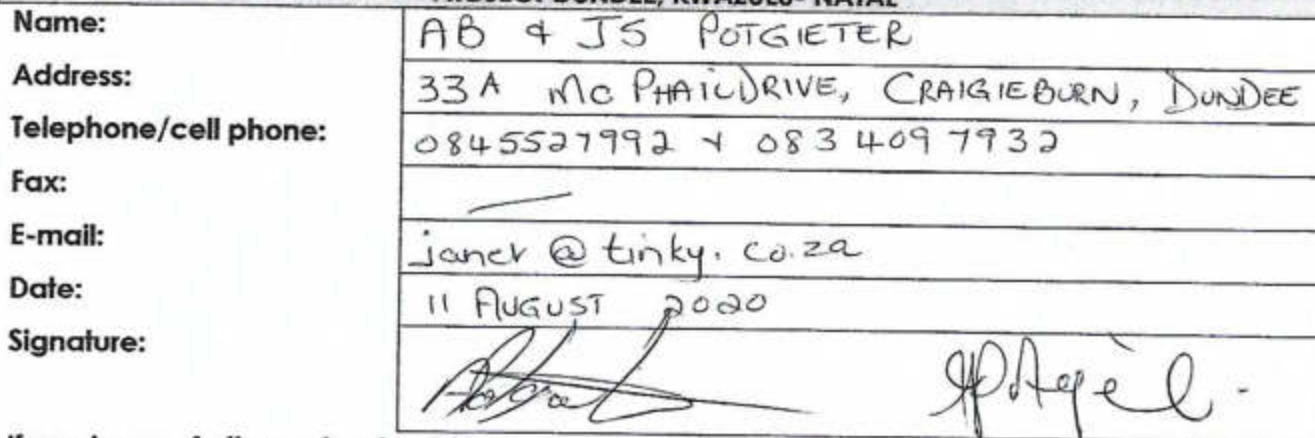 Name: AB & JS POTGIETER
Address: 33A Mc PHAIL DRIVE, CRAIGIEBURN, DUNDEE
Telephone/cell phone: 0845527992 & 083 409 7932
Fax: —
E-mail: janet @ tinky. co.za
Date: 11 AUGUST 2020
Signature: